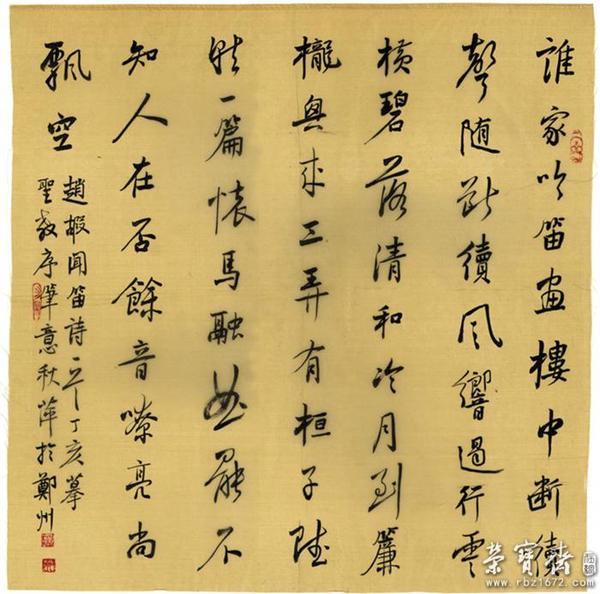 誰家吹笛畫樓中斷續
聲随斷續风響遏行雲
橫碧落清和冷月到簾
櫳興来三弄有桓子賦
就一篇懷馬融曲罷不
知人在否餘音嘹亮尚
飄空
趙嘏聞笛詩一首丁亥摹
聖教序筆意秋萍於鄭州
榮寶齋
www.rbz1672.com